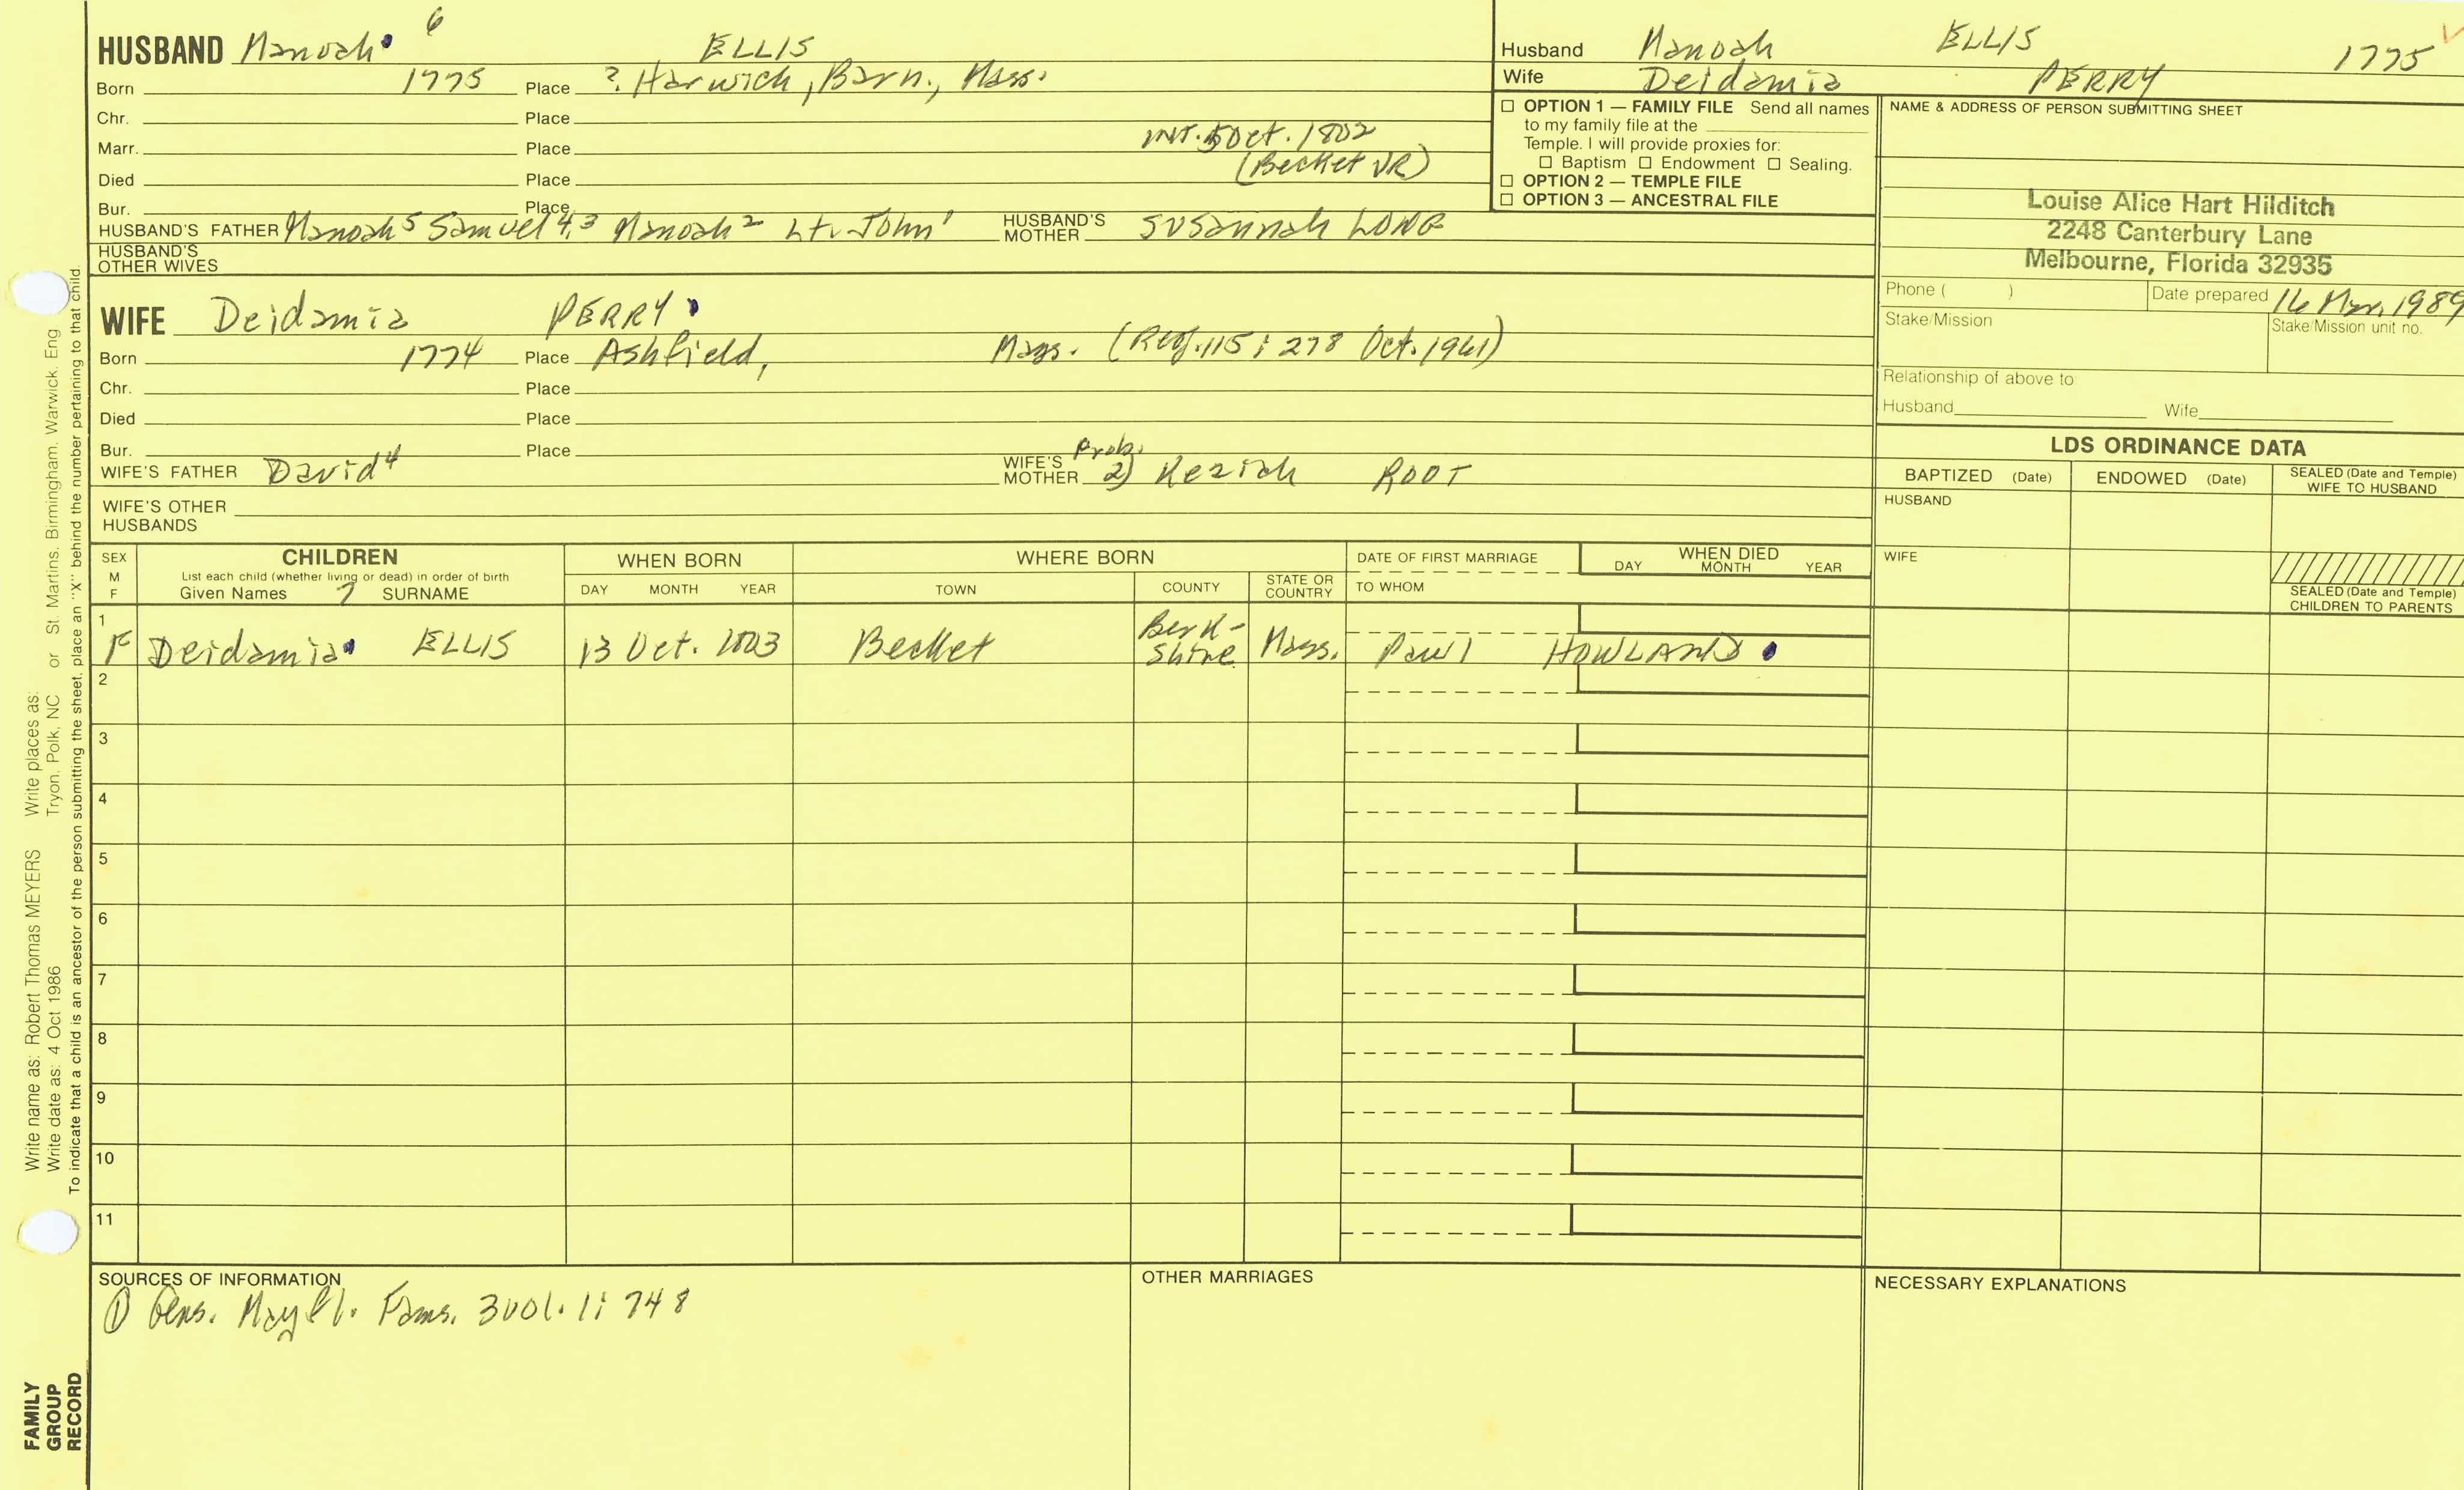 HUSBAND Manoah 6 ELLIS
Born 1775 Place ? Harwich, Barn., Mass.
Chr. Place
Marr. Place INT. 5 Oct. 1802
(Becket VR)
Died Place
Bur. Place
HUSBAND'S FATHER Manoah5 Samuel4,3 Manoah2 Lt. John1 HUSBAND'S MOTHER Susannah LONG
HUSBAND'S OTHER WIVES
WIFE Deidamia PERRY
Born 1774 Place Ashfield, Mass. (Reg. 115: 278 Oct. 1961)
Chr. Place
Died Place
Bur. Place
WIFE'S FATHER David4 WIFE'S MOTHER Prob. 2) Keziah ROOT
WIFE'S OTHER HUSBANDS
Husband Manoah ELLIS 1775
Wife Deidamia PERRY
☐ OPTION 1 — FAMILY FILE Send all names
to my family file at the
Temple. I will provide proxies for:
☐ Baptism ☐ Endowment ☐ Sealing.
☐ OPTION 2 — TEMPLE FILE
☐ OPTION 3 — ANCESTRAL FILE
NAME & ADDRESS OF PERSON SUBMITTING SHEET
Louise Alice Hart Hilditch
2248 Canterbury Lane
Melbourne, Florida 32935
Phone ( ) Date prepared 16 Mar, 1989
Stake/Mission Stake/Mission unit no.
Relationship of above to
Husband Wife
LDS ORDINANCE DATA
BAPTIZED (Date) ENDOWED (Date) SEALED (Date and Temple) WIFE TO HUSBAND
HUSBAND
WIFE
SEALED (Date and Temple)
CHILDREN TO PARENTS
SEX M F CHILDREN WHEN BORN WHERE BORN DATE OF FIRST MARRIAGE WHEN DIED
List each child (whether living or dead) in order of birth DAY MONTH YEAR
Given Names 7 SURNAME DAY MONTH YEAR TOWN COUNTY STATE OR COUNTRY TO WHOM
1
F Deidamia ELLIS 13 Oct. 1803 Becket Berk-shire Mass. Paul HOWLAND
2
3
4
5
6
7
8
9
10
11
SOURCES OF INFORMATION OTHER MARRIAGES NECESSARY EXPLANATIONS
① Gens. Mayfl. Fams. 3 vol. 1: 748
Write name as: Robert Thomas MEYERS Write places as:
Write date as: 4 Oct 1986 Tryon, Polk, NC or St. Martins, Birmingham, Warwick, Eng
To indicate that a child is an ancestor of the person submitting the sheet, place an "X" behind the number pertaining to that child.
FAMILY
GROUP
RECORD